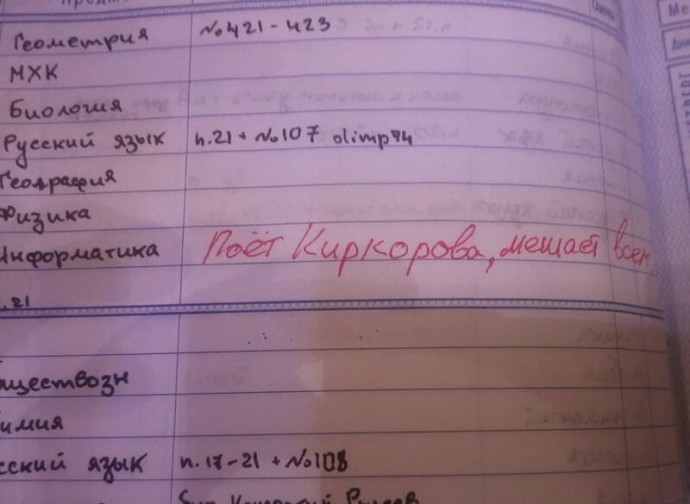 Геометрия №421-423
МХК
Биология
Русский язык п.21+№107 olimp74
География
Физика
Информатика Поёт Киркорова, мешает всем
.21
бществозн
имия
сский язык п.17-21+№108